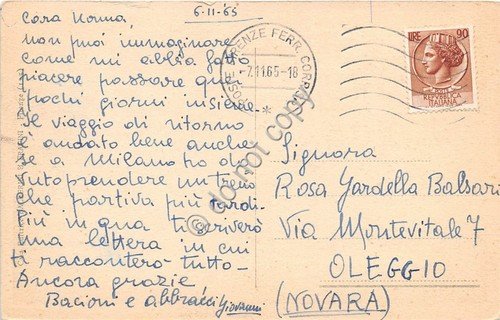 6-11-65
Cara Nonna,
non puoi immaginare
come mi abbia fatto
piacere passare quei
pochi giorni insieme.
Il viaggio di ritorno
è andato bene anche
se a Milano ho do-
vuto prendere un treno
che partiva più tardi-
Più in qua ti scriverò
una lettera in cui
ti racconterò tutto-
Ancora grazie
Bacioni e abbracci Giovanni
POSTE FIRENZE FERR. CORR.
7.11.65-18
LIRE 90
REPVBBLICA
ITALIANA
Signora
Rosa Gardella Balsari
Via Montevitale 7
OLEGGIO
(NOVARA)
do not copy